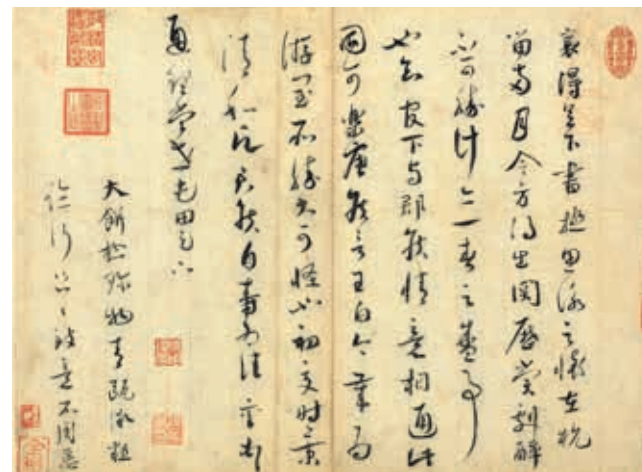 襄得足下書極思詠之懷在杭
留兩月今方得出關歷賞劇醉
不可勝計亦一春之盛事
也知官下與郡侯情意相通此
固可樂唐侯言王白今歲為
游閏所勝大可怪也初夏時景
清和願君侯自壽為佳襄頓首
通理當世屯田足下
大餅極珍物青甌微粗
臨行匆匆致意不周悉